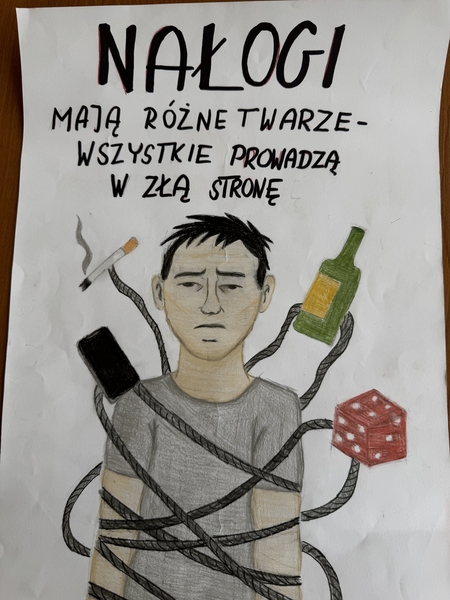 NAŁOGI
MAJĄ RÓŻNE TWARZE-
WSZYSTKIE PROWADZĄ
W ZŁĄ STRONĘ